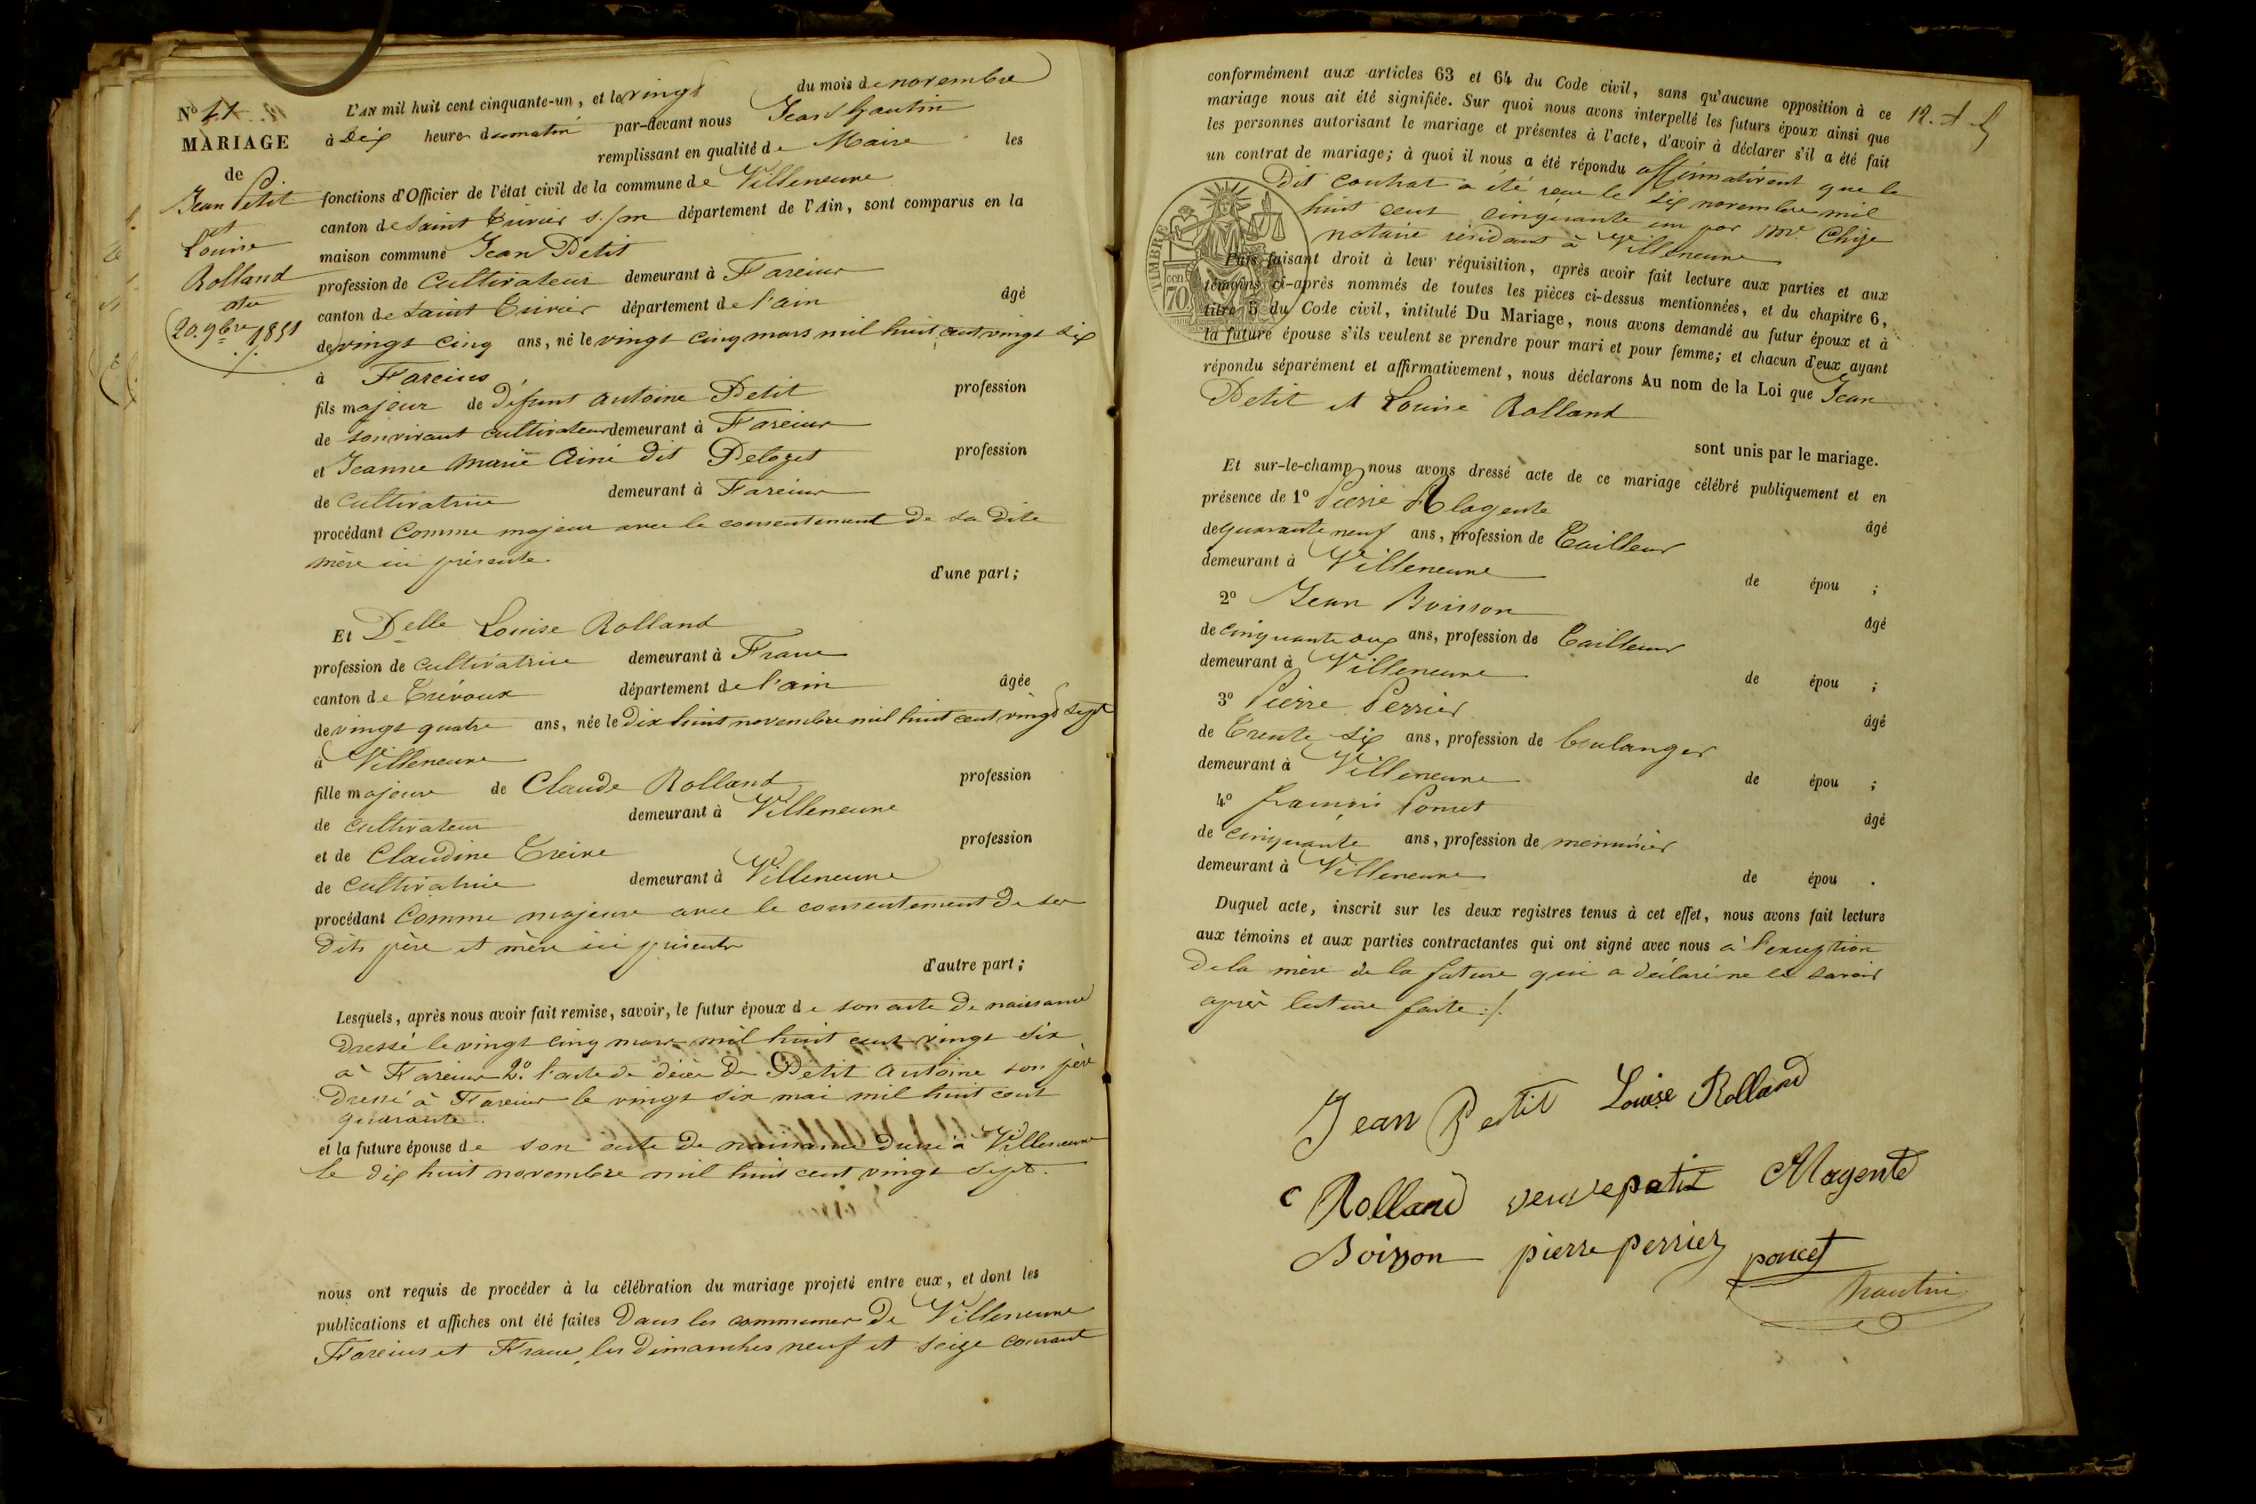 No 41
MARIAGE
de
Jean Petit
et
Louise
Rolland
du
20. 9bre 1851
L'AN mil huit cent cinquante-un, et le vingt du mois de novembre
à dix heures du matin par-devant nous Jean
remplissant en qualité de Maire les
fonctions d'Officier de l'état civil de la commune de Villeneuve
canton de Saint Trivier département de l'Ain, sont comparus en la
maison commune Jean Petit
profession de cultivateur demeurant à Fareins
canton de Saint Trivier département de l'ain âgé
de vingt cinq ans, né le vingt cinq mars mil huit cent vingt six
à Fareins
fils majeur de défunt Antoine Petit profession
de son vivant cultivateur demeurant à Fareins
et Jeanne Marie Ainé dit profession
de cultivatrice demeurant à Fareins
procédant comme majeur avec le consentement de sa dite
mère ici présente
d'une part;
Et Delle Louise Rolland
profession de cultivatrice demeurant à Frans
canton de Trévoux département de l'ain âgée
de vingt quatre ans, née le dix huit novembre mil huit cent vingt sept
à Villeneuve
fille majeure de Claude Rolland profession
de cultivateur demeurant à Villeneuve
et de Claudine profession
de cultivatrice demeurant à Villeneuve
procédant comme majeure avec le consentement de ses
dits père et mère ici présents
d'autre part;
Lesquels, après nous avoir fait remise, savoir, le futur époux de son acte de naissance
dressé le vingt cinq mars mil huit cent vingt six
à Fareins 2º l'acte de décès de Petit Antoine son père
dressé à Fareins le vingt six mai mil huit cent
quarante.
et la future épouse de son acte de naissance dressé à Villeneuve
le dix huit novembre mil huit cent vingt sept.
nous ont requis de procéder à la célébration du mariage projeté entre eux, et dont les
publications et affiches ont été faites dans les communes de Villeneuve
Fareins et Frans, les dimanches neuf et seize courant
conformément aux articles 63 et 64 du Code civil, sans qu'aucune opposition à ce
mariage nous ait été signifiée. Sur quoi nous avons interpellé les futurs époux ainsi que
les personnes autorisant le mariage et présentes à l'acte, d'avoir à déclarer s'il a été fait
un contrat de mariage; à quoi il nous a été répondu affirmativement que le
dit contrat a été reçu le six novembre mil
huit cent cinquante un par Me
notaire résidant à Villeneuve
TIMBRE
70
Puis faisant droit à leur réquisition, après avoir fait lecture aux parties et aux
témoins ci-après nommés de toutes les pièces ci-dessus mentionnées, et du chapitre 6,
titre 5 du Code civil, intitulé Du Mariage, nous avons demandé au futur époux et à
la future épouse s'ils veulent se prendre pour mari et pour femme; et chacun d'eux ayant
répondu séparément et affirmativement, nous déclarons Au nom de la Loi que Jean
Petit et Louise Rolland
sont unis par le mariage.
Et sur-le-champ nous avons dressé acte de ce mariage célébré publiquement et en
présence de 1º Pierre Alagente âgé
de quarante neuf ans, profession de Tailleur
demeurant à Villeneuve de épou ;
2º Jean Boisson âgé
de cinquante ans, profession de Tailleur
demeurant à Villeneuve de épou ;
3º Pierre Perrier âgé
de Trente six ans, profession de boulanger
demeurant à Villeneuve de épou ;
4º françois Poncet âgé
de cinquante ans, profession de menuisier
demeurant à Villeneuve de épou .
Duquel acte, inscrit sur les deux registres tenus à cet effet, nous avons fait lecture
aux témoins et aux parties contractantes qui ont signé avec nous à l'exception
de la mère de la future qui a déclaré ne le savoir
après lecture faite
Jean Petit Louise Rolland
C Rolland veuve petit Alagente
Boisson pierre perrier poncet